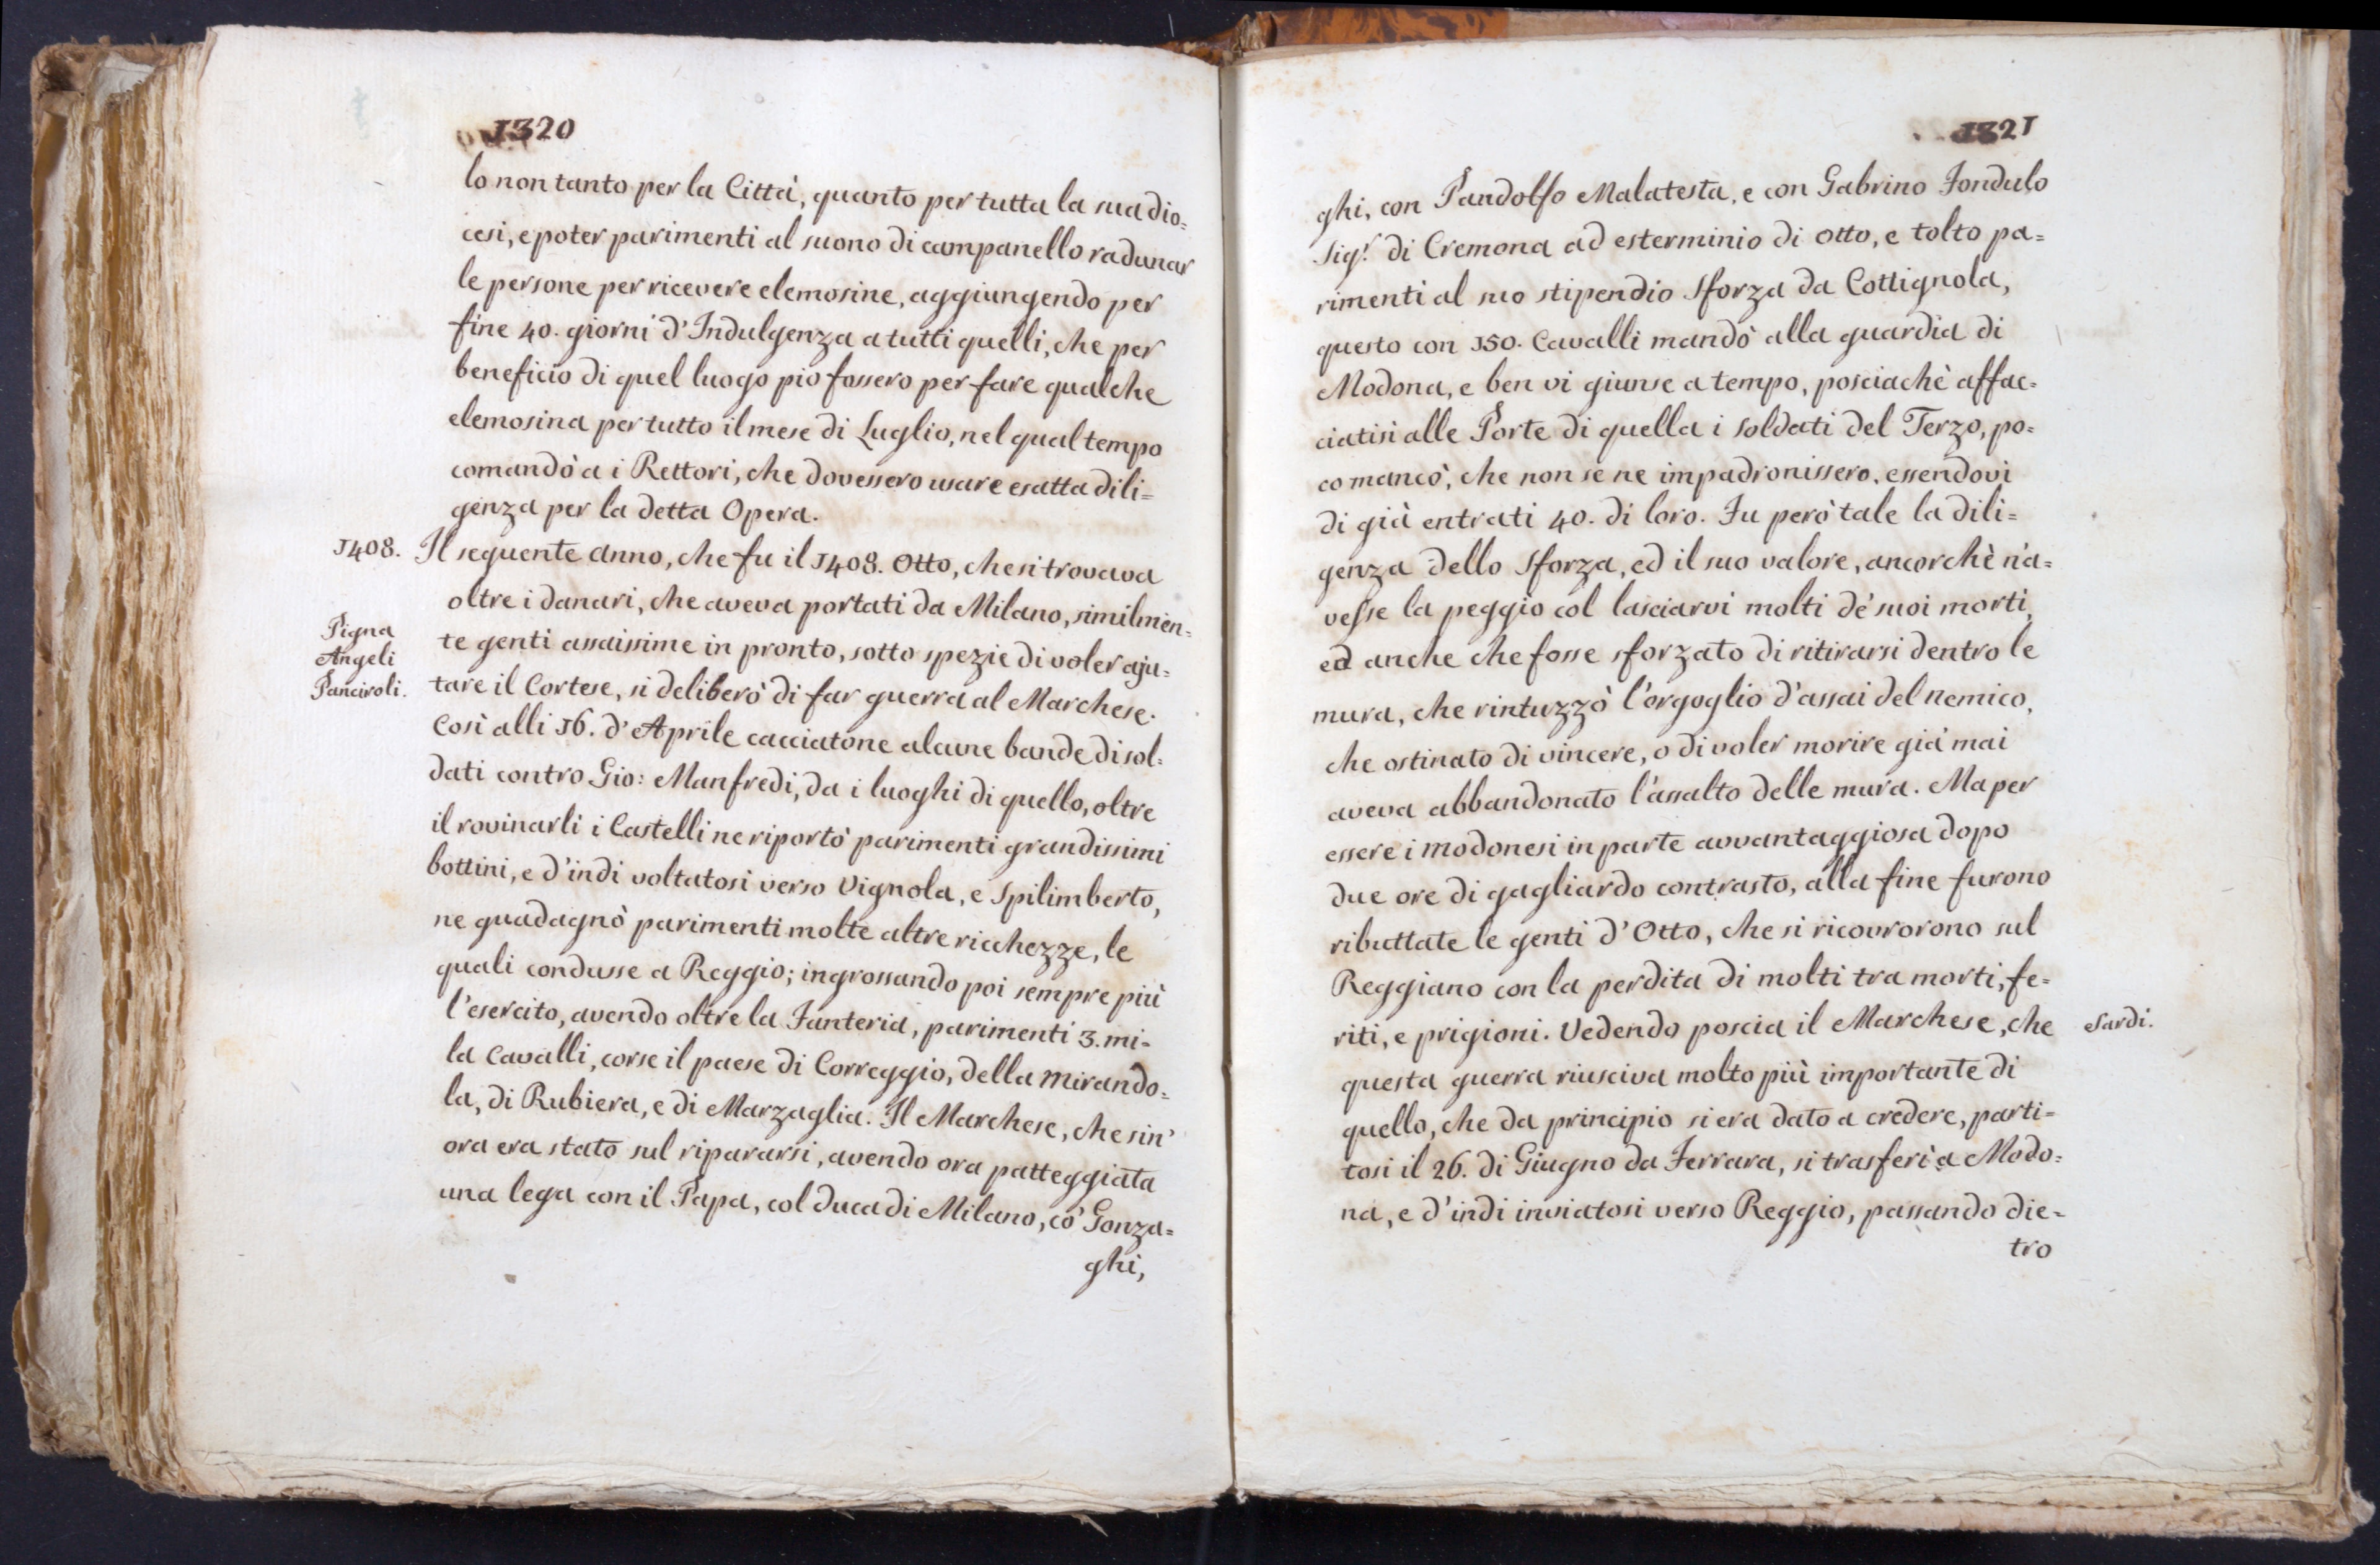 1320
lo non tanto per la Città, quanto per tutta la sua dio=
cesi, e poter parimenti al suono di campanello radunar
le persone per ricevere elemosine, aggiungendo per
fine 40. giorni d'Indulgenza a tutti quelli, che per
beneficio di quel luogo pio fossero per fare qualche
elemosina per tutto il mese di Luglio, nel qual tempo
comandò a i Rettori, che dovessero usare esatta dili=
genza per la detta Opera.
1408. Il seguente anno, che fu il 1408. Otto, che si trovava
oltre i danari, che aveva portati da Milano, similmen=
te genti assaissime in pronto, sotto spezie di voler aju=
tare il Cortese, si deliberò di far guerra al Marchese.
Pigna
Angeli
Panciroli.
Così alli 16. d'Aprile cacciatone alcune bande di sol=
dati contro Gio: Manfredi, da i luoghi di quello, oltre
il rovinarli i Castelli ne riportò parimenti grandissimi
bottini, e d'indi voltatosi verso Vignola, e Spilimberto,
ne guadagnò parimenti molte altre ricchezze, le
quali condusse a Reggio; ingrossando poi sempre più
l'esercito, avendo oltre la Fanteria, parimenti 3. mi=
la Cavalli, corse il paese di Correggio, della Mirando=
la, di Rubiera, e di Marzaglia. Il Marchese, che sin'
ora era stato sul ripararsi, avendo ora patteggiata
una lega con il Papa, col Duca di Milano, co' Gonza=
ghi,
1321
ghi, con Pandolfo Malatesta, e con Gabrino Fondulo
Sig.r di Cremona ad esterminio di Otto, e tolto pa=
rimenti al suo stipendio Sforza da Cottignola,
questo con 150. Cavalli mandò alla guardia di
Modona, e ben vi giunse a tempo, posciachè affac=
ciatisi alle Porte di quella i Soldati del Terzo, po=
co mancò, che non se ne impadronissero, essendovi
di già entrati 40. di loro. Fu però tale la dili=
genza dello Sforza, ed il suo valore, ancorchè n'a=
vesse la peggio col lasciarvi molti de' suoi morti,
ed anche che fosse sforzato di ritirarsi dentro le
mura, che rintuzzò l'orgoglio d'assai del nemico,
che ostinato di vincere, o di voler morire già mai
aveva abbandonato l'assalto delle mura. Ma per
essere i Modonesi in parte avvantaggiosa dopo
due ore di gagliardo contrasto, alla fine furono
ributtate le genti d'Otto, che si ricovrorono sul
Reggiano con la perdita di molti tra morti, fe=
riti, e prigioni. Vedendo poscia il Marchese, che
Sardi.
questa guerra riusciva molto più importante di
quello, che da principio si era dato a credere, parti=
tosi il 26. di Giugno da Ferrara, si trasferì a Modo=
na, e d'indi inviatosi verso Reggio, passando die=
tro